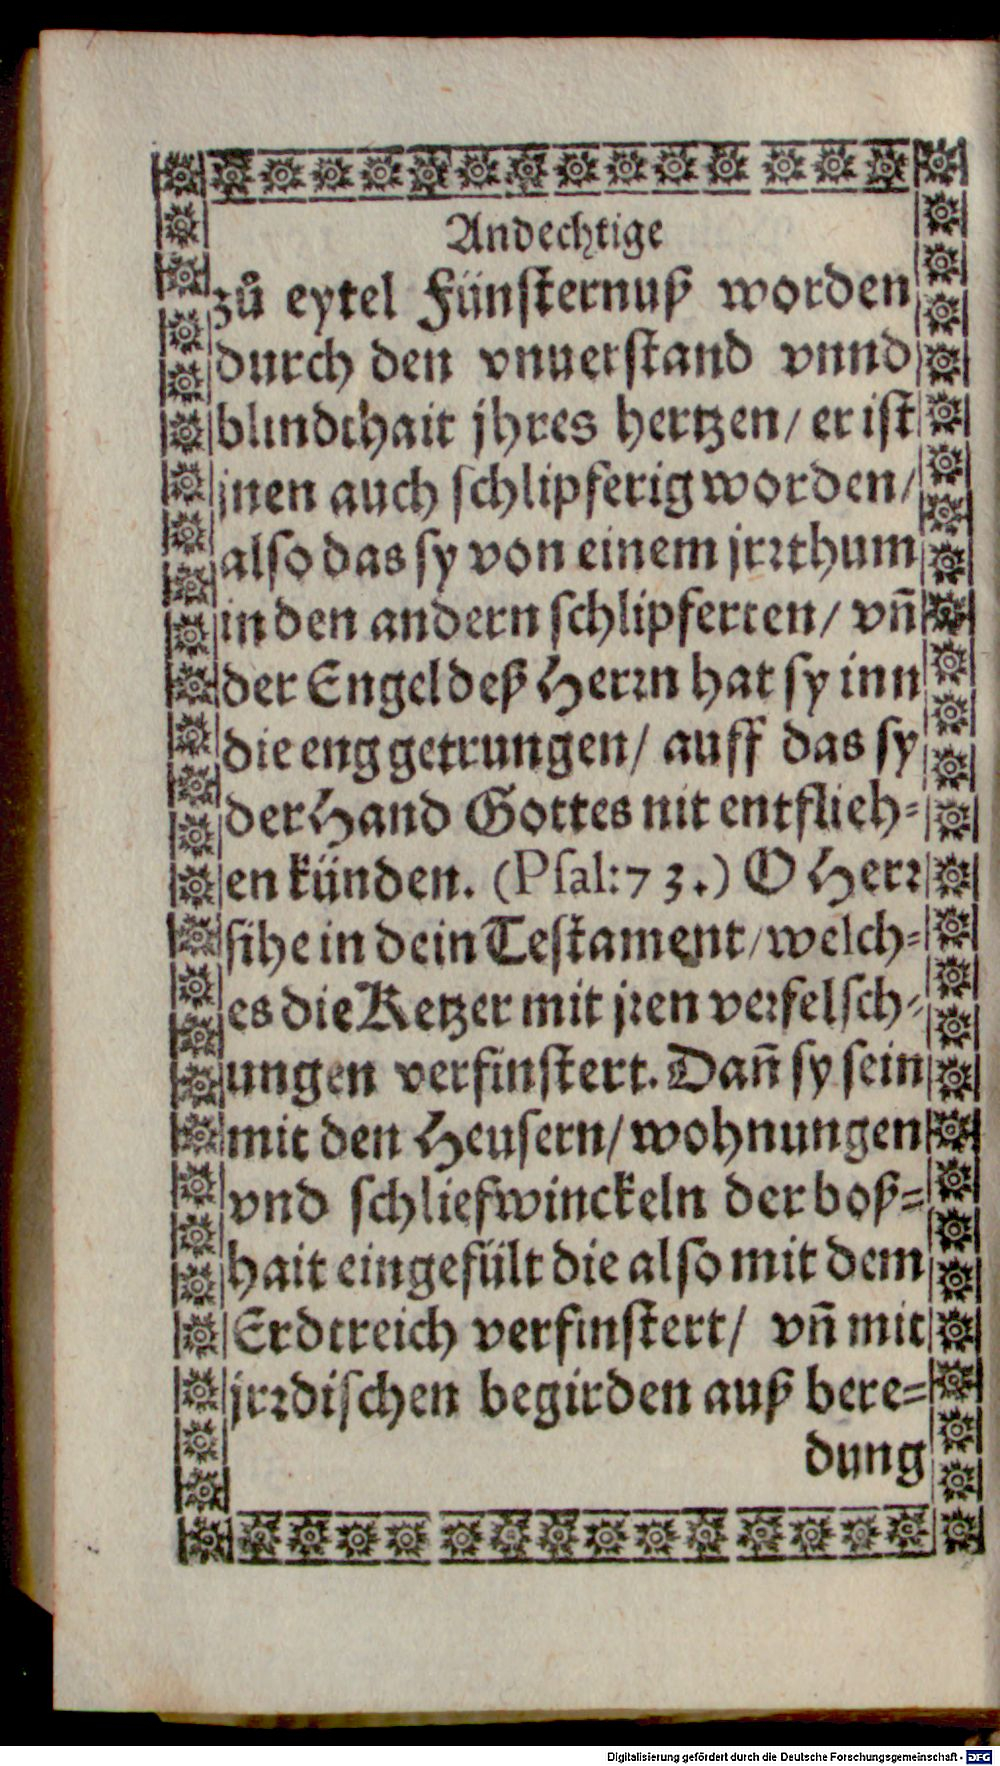 Andechtige
zů eytel Fünsternuß worden
durch den vnuerstand vnnd
blindthait jhres hertzen/ er ist
jnen auch schlipferig worden/
also das sy von einem jrrthum
in den andern schlipferten/ vñ
der Engel deß Herrn hat sy inn
die eng getrungen/ auff das sy
der Hand Gottes nit entflieh⸗
en künden. (Psal: 73.) O Herr
sihe in dein Testament/ welch⸗
es die Ketzer mit jren verfelsch⸗
ungen verfinstert. Dañ sy sein
mit den Heusern/ wohnungen
vnd schliefwinckeln der boß⸗
hait eingefült die also mit dem
Erdtreich verfinstert/ vñ mit
jrrdischen begirden auß bere⸗
dung
Digitalisierung gefördert durch die Deutsche Forschungsgemeinschaft - DFG